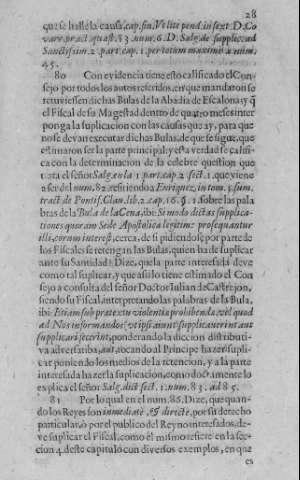 28
que se halle la causa. cap. fin. Vt lite pend. in sext. D. Co
varr. pract. quæst. 35. num. 6. D. Salg. de supplic. ad
Sanctissim. 2. part. cap. 1. per totum maximè à num.
45.
80 Con evidencia tiene esto calificado el Con-
sejo por todos los autos referidos, en que mandaron se
retuviessen dichas Bulas de la Abadia de Escalona; y q̃
el Fiscal de su Magestad dentro de quatro meses inter
ponga la suplicacion con las causas que ay, para que
no se devan executar dichas Bulas, de que se sigue, que
estimaron ser la parte principal; y esta verdad se califi-
ca con la determinacion de la celebre question que
trata el señor Salg. en la 1. part. cap. 2. sect. 1. que viene
a ser del num. 82. refistiendo a Enriquez, in tom. 1. sum.
tract. de Pontif. Clau. lib. 2. cap. 16. §. 1. sobre las pala
bras de la Bula de la Cena, ibi: Si modo dictas supplica-
tiones quoram Sede Apostolica legitimè prosequantur
illi, quorum interest, cerca, de si pidiendose por parte de
los Fiscales se retengan las Bulas, quien ha de suplicar
ante su Santidad? Dize, que la parte interesada deve
como tal suplicar, y que assi lo tiene estimado el Con
sejo a consulta del señor Doctor Iulian de Castrejon,
siendo su Fiscal, interpretando las palabras de la Bula,
ibi: Etiam sub prætextu violentia prohibenda, vel quod
ad Nos informandos, vt ipsi aiunt supplicaverint aut
supplicari fecerint, ponderando la diccion distributi-
va adversativa, aut, tocando al Principe hazer supli-
car poniendo los medios de la retencion, y a la parte
interesada hazer la suplicacion, como doctamente lo
explica el señor Salg. dict. sect. 1. num. 83. ad 85.
81 Por lo qual en el num. 86. Dize, que quan-
do los Reyes son inmediatè, & directè, por su derecho
particular, ò por el publico del Reyno interesados, de-
ve suplicar el Fiscal, como èl mismo refiere en la sec-
cion 4. deste capitulo con diversos exemplos, en que
es